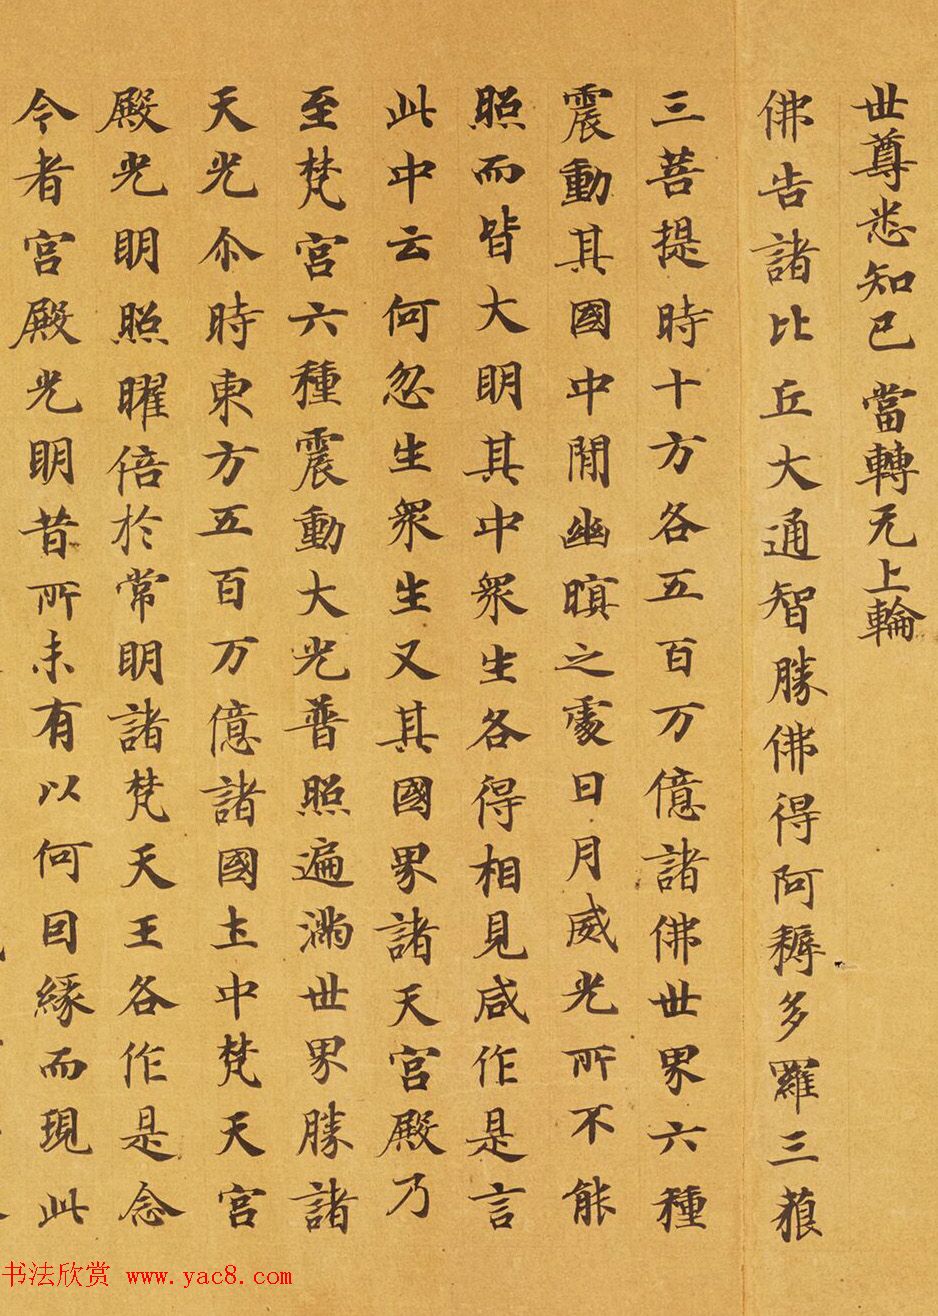 世尊悉知已 當轉无上輪
佛告諸比丘大通智勝佛得阿耨多羅三藐
三菩提時十方各五百万億諸佛世界六種
震動其國中間幽暝之處日月威光所不能
照而皆大明其中眾生各得相見咸作是言
此中云何忽生眾生又其國界諸天宮殿乃
至梵宮六種震動大光普照遍滿世界勝諸
天光尒時東方五百万億諸國土中梵天宮
殿光明照曜倍於常明諸梵天王各作是念
今者宮殿光明昔所未有以何因緣而現此
书法欣赏 www.yac8.com